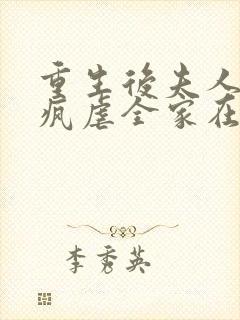 重生後夫人
瘋虐全家在
李秀英